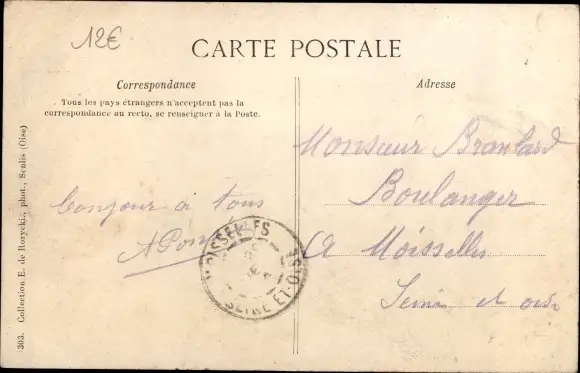 12€
CARTE POSTALE
Correspondance
Tous les pays étrangers n'acceptent pas la
correspondance au recto, se renseigner à la Poste.
Adresse
Monsieur Branlard
Boulanger
A Moisselles
Seine et oise
bonjour a tous
MOISSELLES
SEINE-ET-OISE
303. Collection E. de Rozycki, phot., Senlis (Oise)